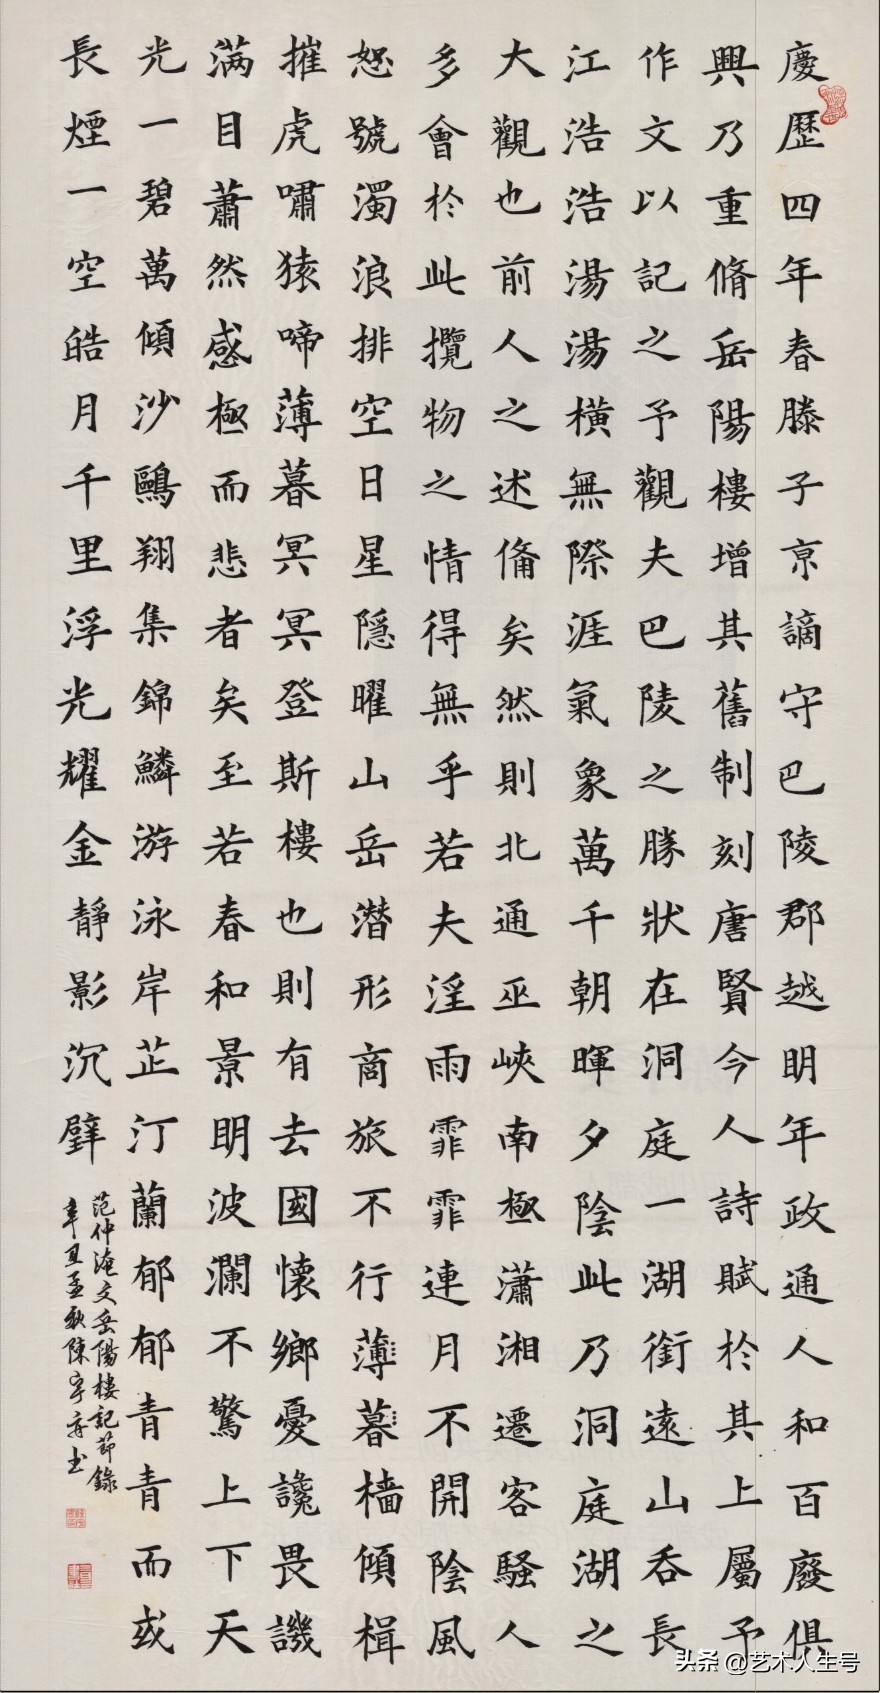 慶歷四年春滕子京謫守巴陵郡越明年政通人和百廢俱
興乃重脩岳陽樓增其舊制刻唐賢今人詩賦於其上屬予
作文以記之予觀夫巴陵之勝狀在洞庭一湖銜遠山吞長
江浩浩湯湯橫無際涯氣象萬千朝暉夕陰此乃洞庭湖之
大觀也前人之述備矣然則北通巫峽南極瀟湘遷客騷人
多會於此攬物之情得無乎若夫淫雨霏霏連月不開陰風
怒號濁浪排空日星隱曜山岳潛形商旅不行薄暮檣傾楫
摧虎嘯猿啼薄暮冥冥登斯樓也則有去國懷鄉憂讒畏譏
满目蕭然感極而悲者矣至若春和景明波瀾不驚上下天
光一碧萬傾沙鷗翔集錦鱗游泳岸芷汀蘭郁郁青青而或
長煙一空皓月千里浮光耀金靜影沉璧
范仲淹文岳陽樓記節錄
辛丑孟秋陳宇书
头条 @艺术人生号